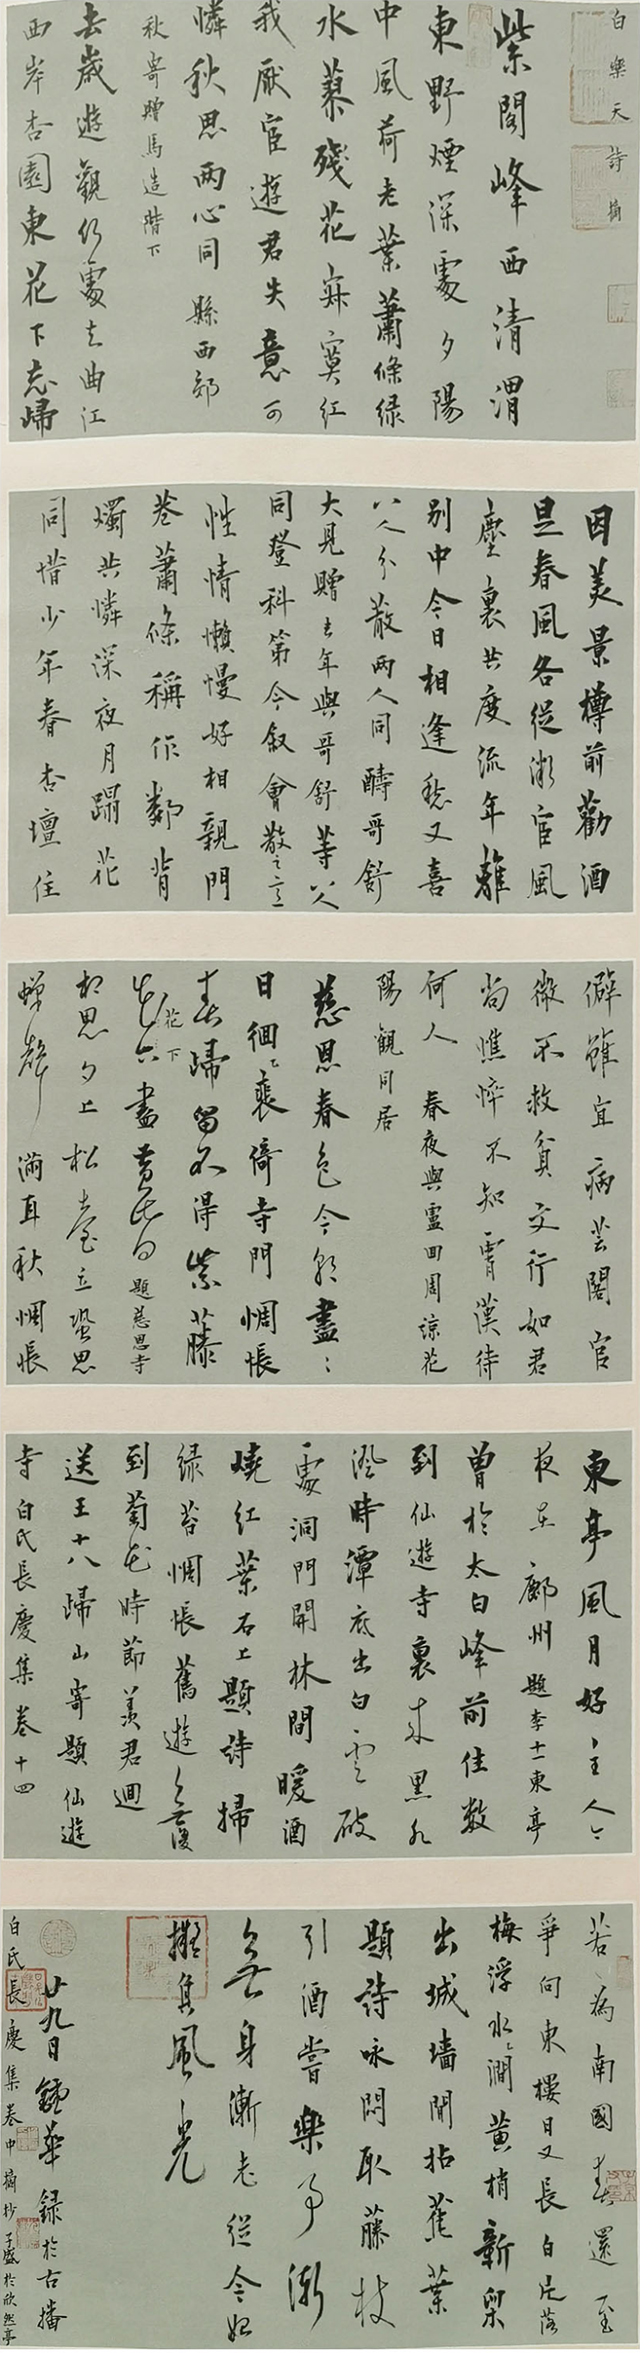 白樂天詩摘
紫閣峰西清渭
東野煙深處夕陽
中風荷老葉蕭條綠
水蓼殘花寂寞紅
我厭宦遊君失意可
憐秋思兩心同 縣西郊
秋寄贈馬造階下
去歲遊觀何處去曲江
西岸杏園東花下忘歸
因美景樽前勸酒
是春風各從微宦風
塵裏共度流年離
別中今日相逢愁又喜
八人分散兩人同 酧哥舒
大見贈去年與哥舒等八人
同登科第今叙會散之意
性情懶慢好相親門
巷蕭條稱作鄰背
燭共憐深夜月蹋花
同惜少年春杏壇住
僻雖宜病芸閣官
微不救貧文行如君
尚憔悴不知霄漢待
何人 春夜與盧四周諒花
陽觀同居
慈恩春色今朝盡ミ
日徊ミ裵倚寺門惆悵
春歸留不得紫藤
花下
花下盡黄昏 題慈恩寺
相思夕上松臺立蛩思
蟬聲滿耳秋惆悵
東亭風月好ミ主人今
夜在鄜州 題李十一東亭
曾於太白峰前住數
到仙遊寺裏來黑水
澄時潭底出白雲破
處洞門開林間暖酒
燒紅葉石上題詩掃
綠苔惆悵舊遊無復
到菊花時節羨君迴
送王十八歸山寄題仙遊
寺 白氏長慶集卷十四
若ミ為南國春還至
爭向東樓日又長白片落
梅浮水ミ澗黃梢新柳
出城墻閒拈蕉葉
題詩咏悶取藤枝
引酒嘗樂事漸
無身漸老從今始
擬負風光
廿九日鍾華録於古播
白氏長慶集卷中摘抄子盛於欣然亭